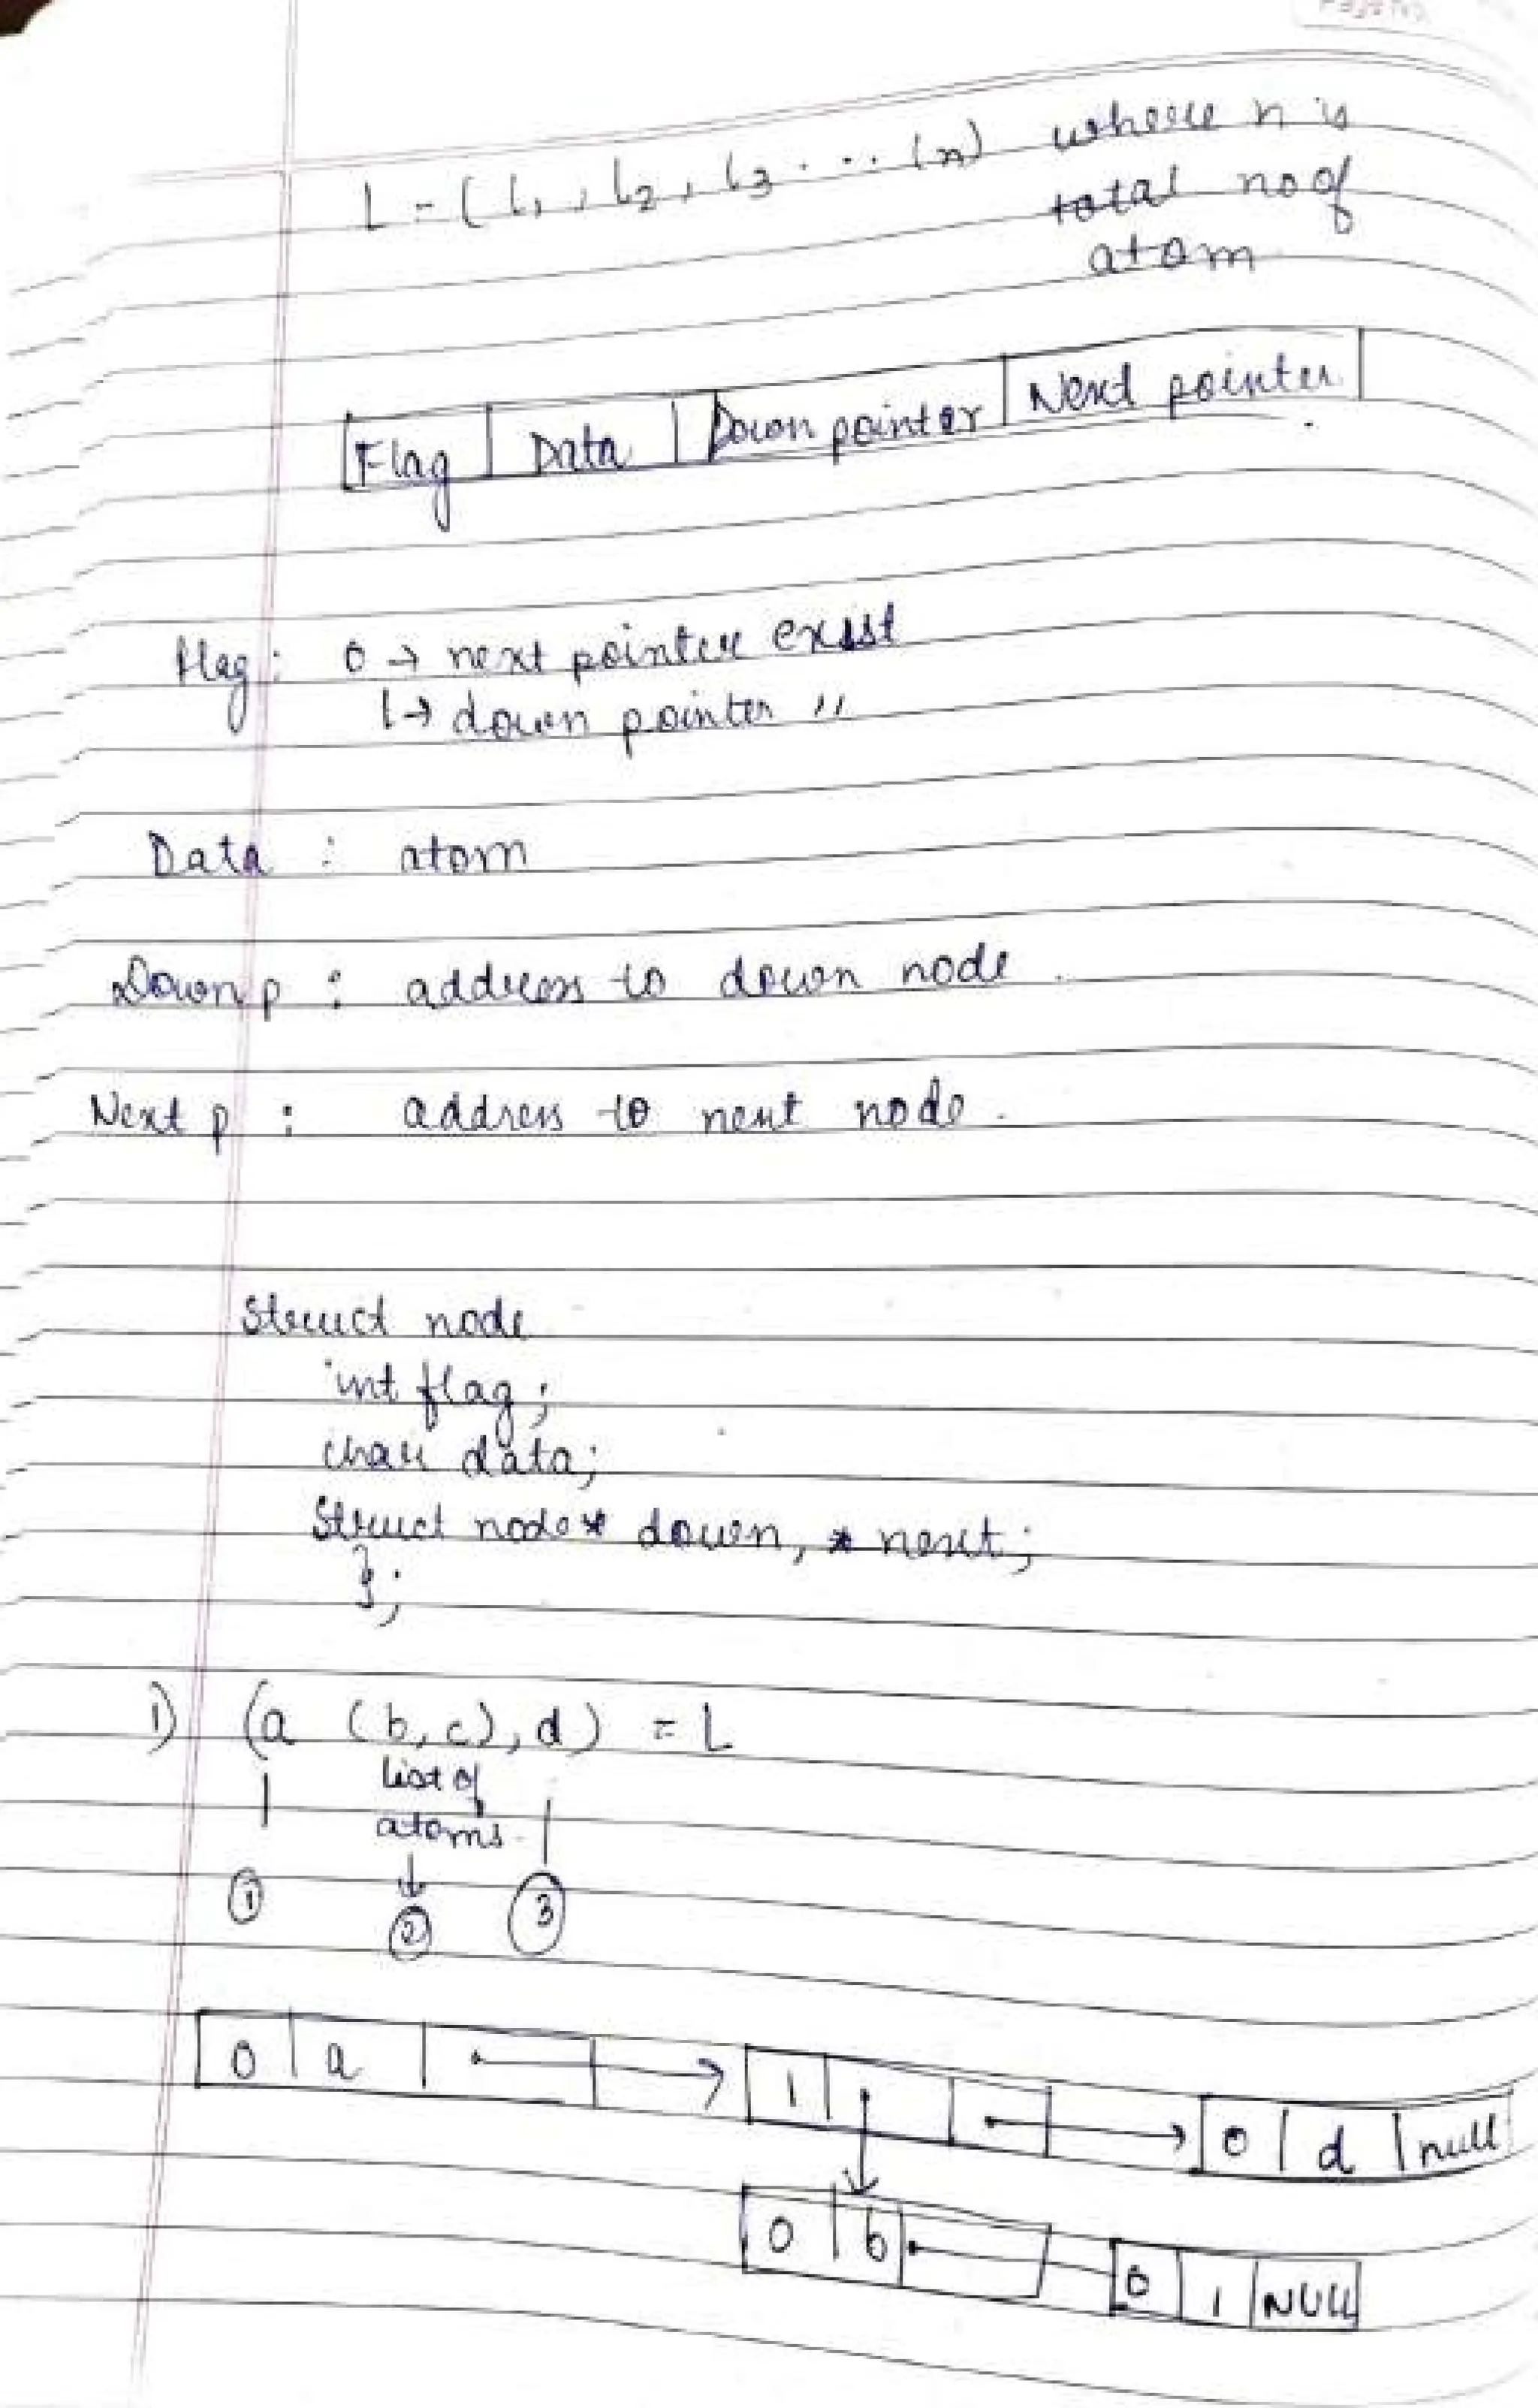 L = (l1, l2, l3 ... ln) where n is
total no of
atom
Flag | Data | Down pointer | Next pointer
Flag : 0 → next pointer exist
1 → down pointer "
Data : atom
Down p : address to down node.
Next p : address to next node.
Struct node
int flag;
char data;
Struct node* down, * next;
};
1) (a (b, c), d) = L
list of
atoms
① ② ③
0 | a 1 0 | d | null
0 | b 0 | 1 | NULL